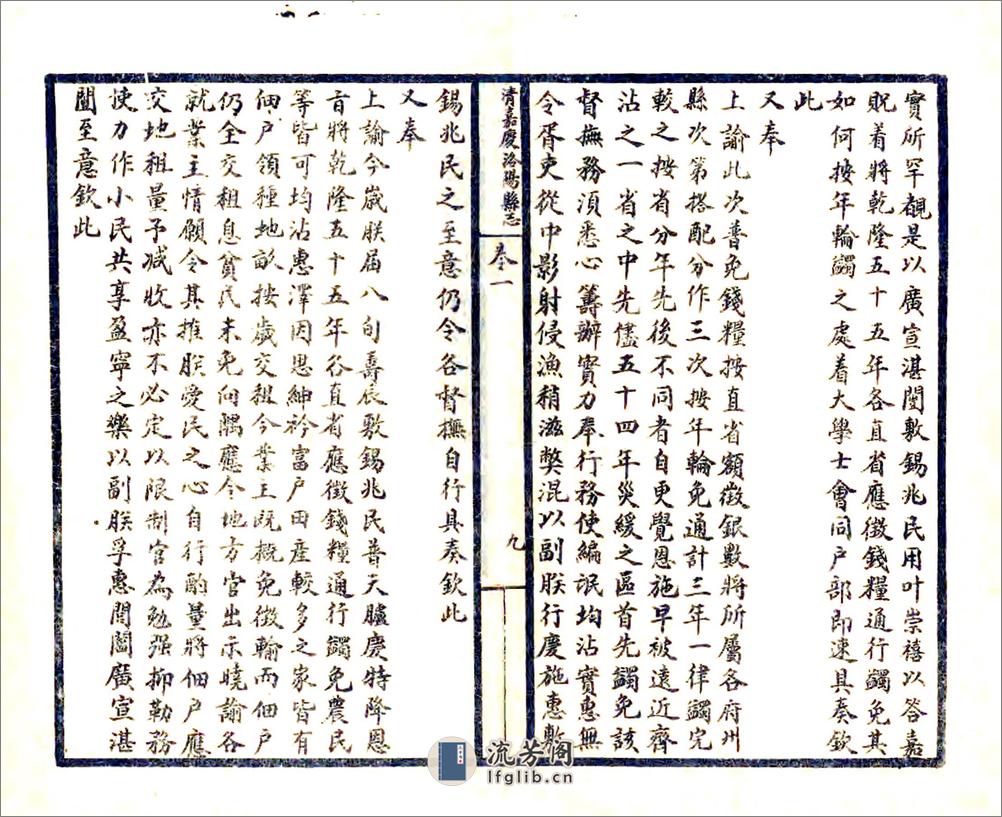 實所罕覯是以廣宣湛闓敷錫兆民用叶崇禧以答嘉
貺着將乾隆五十五年各直省應徵錢糧通行蠲免其
如何按年輪蠲之處着大學士會同户部即速具奏欽
此
又奉
上諭此次普免錢糧按直省額徵銀數將所屬各府州
縣次第搭配分作三次按年輪免通計三年一律蠲完
較之按省分年先後不同者自更覺恩施早被遠近齊
沾之一省之中先儘五十四年災緩之區首先蠲免該
督撫務須悉心籌辦實力奉行務使編氓均沾實惠無
令胥吏從中影射侵漁稍滋弊混以副朕行慶施惠敷
清嘉慶洛陽縣志
卷一
九
錫兆民之至意仍令各督撫自行具奏欽此
又奉
上諭今歲朕届八旬壽辰敷錫兆民普天臚慶特降恩
旨將乾隆五十五年各直省應徵錢糧通行蠲免農民
等皆可均沾惠澤因思紳衿富户田產較多之家皆有
佃户領種地畝按歲交租今業主既概免徵輸而佃户
仍全交租息貧民未免向隅應令地方官出示曉諭各
就業主情願令其推朕愛民之心自行酌量將佃户應
交地租量予减收亦不必定以限制官為勉强抑勒務
使力作小民共享盈寧之樂以副朕孚惠閭閻廣宣湛
闓至意欽此
流芳阁
lfglib.cn